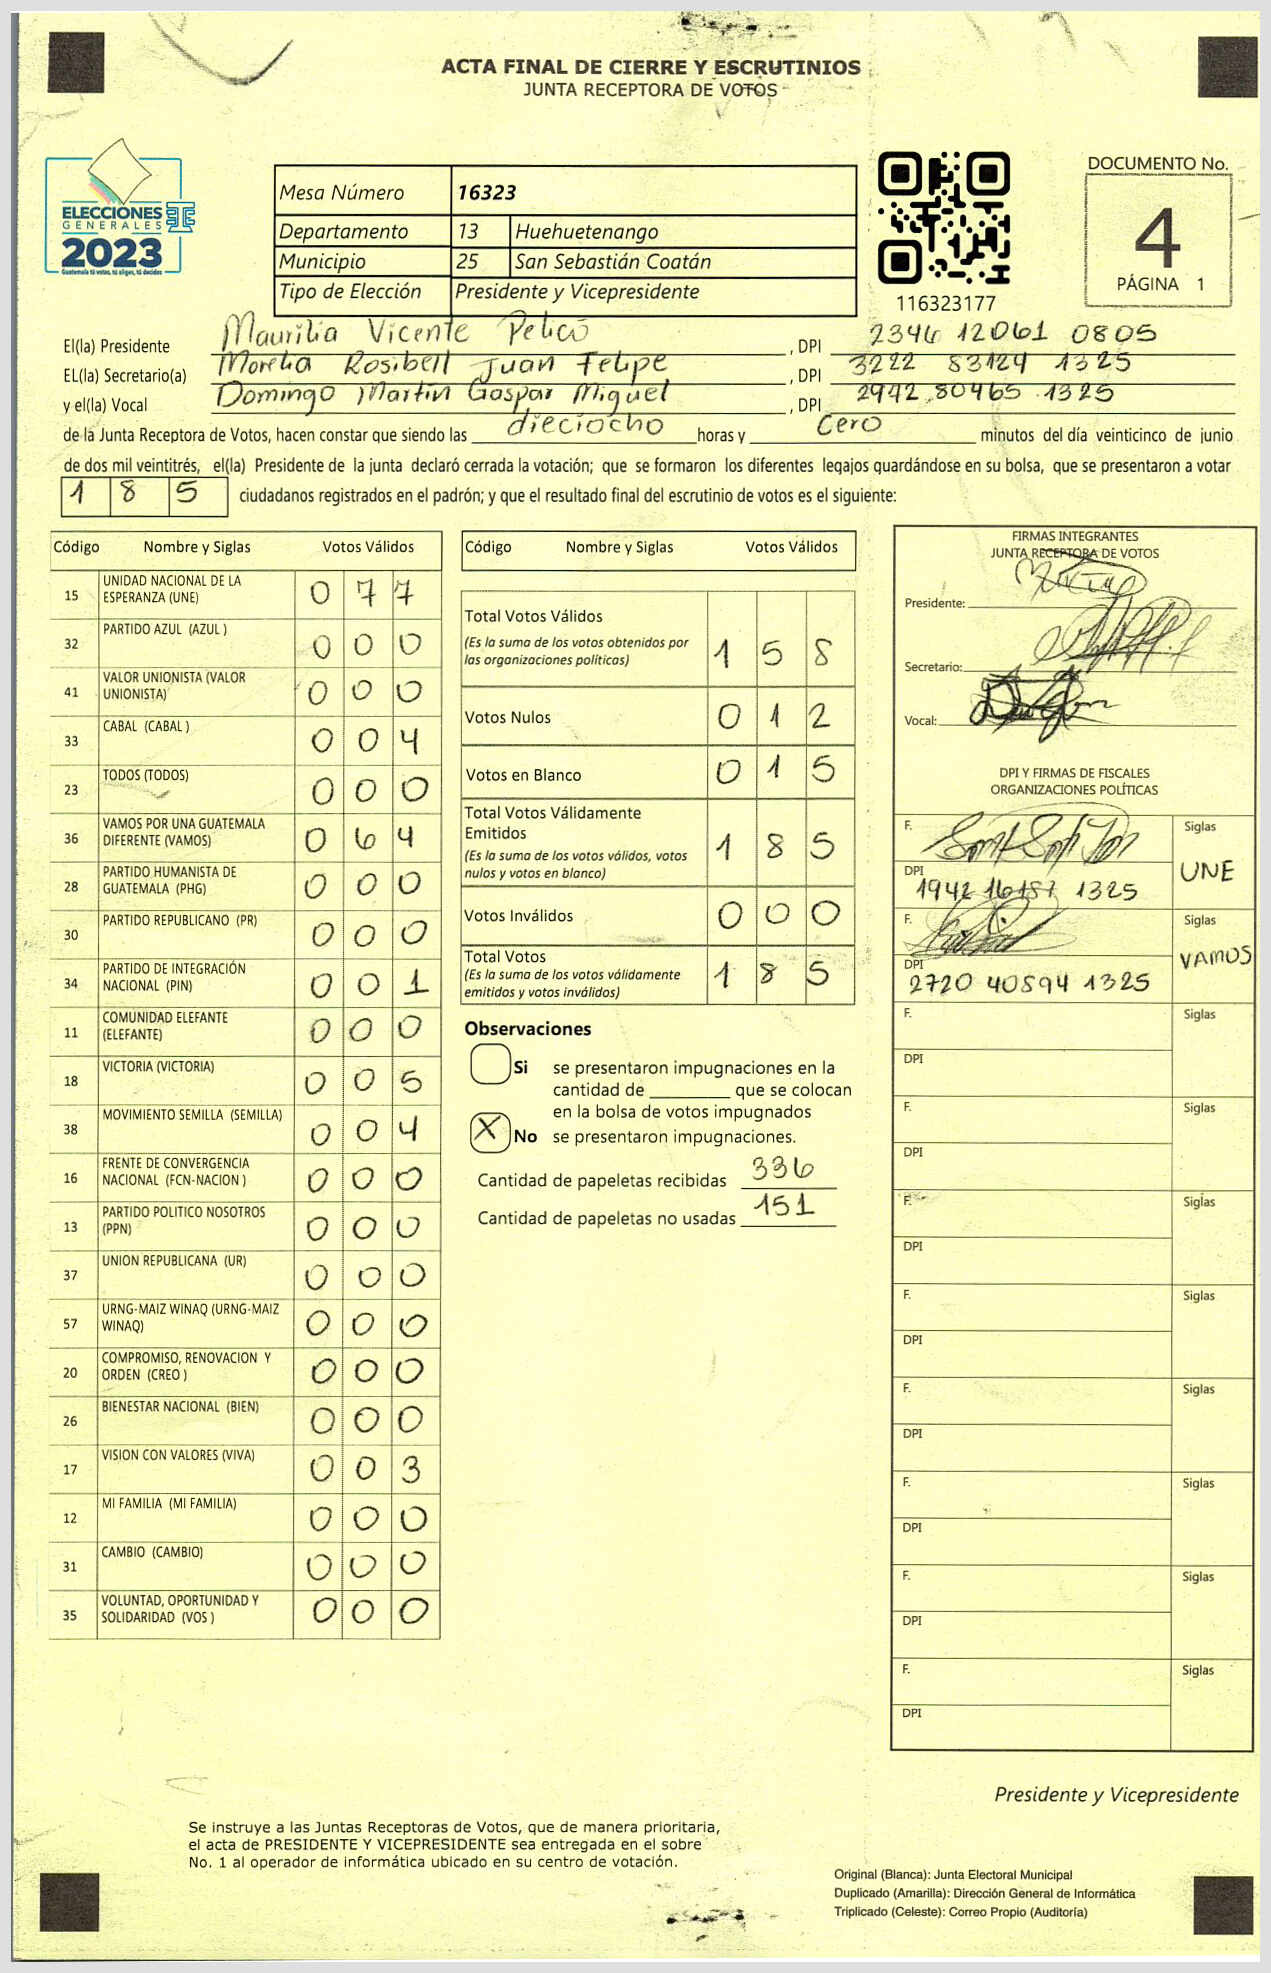 ACTA FINAL DE CIERRE Y ESCRUTINIOS
JUNTA RECEPTORA DE VOTOS
ELECCIONES
GENERALES
2023
Guatemala tú votas, tú eliges, tú decides
Mesa Número 16323
Departamento 13 Huehuetenango
Municipio 25 San Sebastián Coatán
Tipo de Elección Presidente y Vicepresidente
116323177
DOCUMENTO No.
4
PÁGINA 1
El(la) Presidente Maurilia Vicente Pelicó , DPI 2346 12061 0805
EL(la) Secretario(a) Morelia Rosibell Juan Felipe , DPI 3222 83124 1325
y el(la) Vocal Domingo Martín Gaspar Miguel , DPI 2942 80465 1325
de la Junta Receptora de Votos, hacen constar que siendo las dieciocho horas y cero minutos del día veinticinco de junio
de dos mil veintitrés, el(la) Presidente de la junta declaró cerrada la votación; que se formaron los diferentes legajos guardándose en su bolsa, que se presentaron a votar
1 8 5 ciudadanos registrados en el padrón; y que el resultado final del escrutinio de votos es el siguiente:
Código Nombre y Siglas Votos Válidos
15 UNIDAD NACIONAL DE LA ESPERANZA (UNE) 0 7 7
32 PARTIDO AZUL (AZUL ) 0 0 0
41 VALOR UNIONISTA (VALOR UNIONISTA) 0 0 0
33 CABAL (CABAL ) 0 0 4
23 TODOS (TODOS) 0 0 0
36 VAMOS POR UNA GUATEMALA DIFERENTE (VAMOS) 0 6 4
28 PARTIDO HUMANISTA DE GUATEMALA (PHG) 0 0 0
30 PARTIDO REPUBLICANO (PR) 0 0 0
34 PARTIDO DE INTEGRACIÓN NACIONAL (PIN) 0 0 1
11 COMUNIDAD ELEFANTE (ELEFANTE) 0 0 0
18 VICTORIA (VICTORIA) 0 0 5
38 MOVIMIENTO SEMILLA (SEMILLA) 0 0 4
16 FRENTE DE CONVERGENCIA NACIONAL (FCN-NACION ) 0 0 0
13 PARTIDO POLITICO NOSOTROS (PPN) 0 0 0
37 UNION REPUBLICANA (UR) 0 0 0
57 URNG-MAIZ WINAQ (URNG-MAIZ WINAQ) 0 0 0
20 COMPROMISO, RENOVACION Y ORDEN (CREO ) 0 0 0
26 BIENESTAR NACIONAL (BIEN) 0 0 0
17 VISION CON VALORES (VIVA) 0 0 3
12 MI FAMILIA (MI FAMILIA) 0 0 0
31 CAMBIO (CAMBIO) 0 0 0
35 VOLUNTAD, OPORTUNIDAD Y SOLIDARIDAD (VOS ) 0 0 0
Código Nombre y Siglas Votos Válidos
Total Votos Válidos
(Es la suma de los votos obtenidos por las organizaciones políticas) 1 5 8
Votos Nulos 0 1 2
Votos en Blanco 0 1 5
Total Votos Válidamente Emitidos
(Es la suma de los votos válidos, votos nulos y votos en blanco) 1 8 5
Votos Inválidos 0 0 0
Total Votos
(Es la suma de los votos válidamente emitidos y votos inválidos) 1 8 5
Observaciones
Si se presentaron impugnaciones en la
cantidad de ________ que se colocan
en la bolsa de votos impugnados
X No se presentaron impugnaciones.
Cantidad de papeletas recibidas 336
Cantidad de papeletas no usadas 151
FIRMAS INTEGRANTES
JUNTA RECEPTORA DE VOTOS
Presidente:
Secretario:
Vocal:
DPI Y FIRMAS DE FISCALES
ORGANIZACIONES POLÍTICAS
F. Siglas UNE
DPI 1942 16187 1325
F. Siglas VAMOS
DPI 2720 40894 1325
F. Siglas
DPI
F. Siglas
DPI
F. Siglas
DPI
F. Siglas
DPI
F. Siglas
DPI
F. Siglas
DPI
F. Siglas
DPI
F. Siglas
DPI
Presidente y Vicepresidente
Se instruye a las Juntas Receptoras de Votos, que de manera prioritaria,
el acta de PRESIDENTE Y VICEPRESIDENTE sea entregada en el sobre
No. 1 al operador de informática ubicado en su centro de votación.
Original (Blanca): Junta Electoral Municipal
Duplicado (Amarilla): Dirección General de Informática
Triplicado (Celeste): Correo Propio (Auditoría)